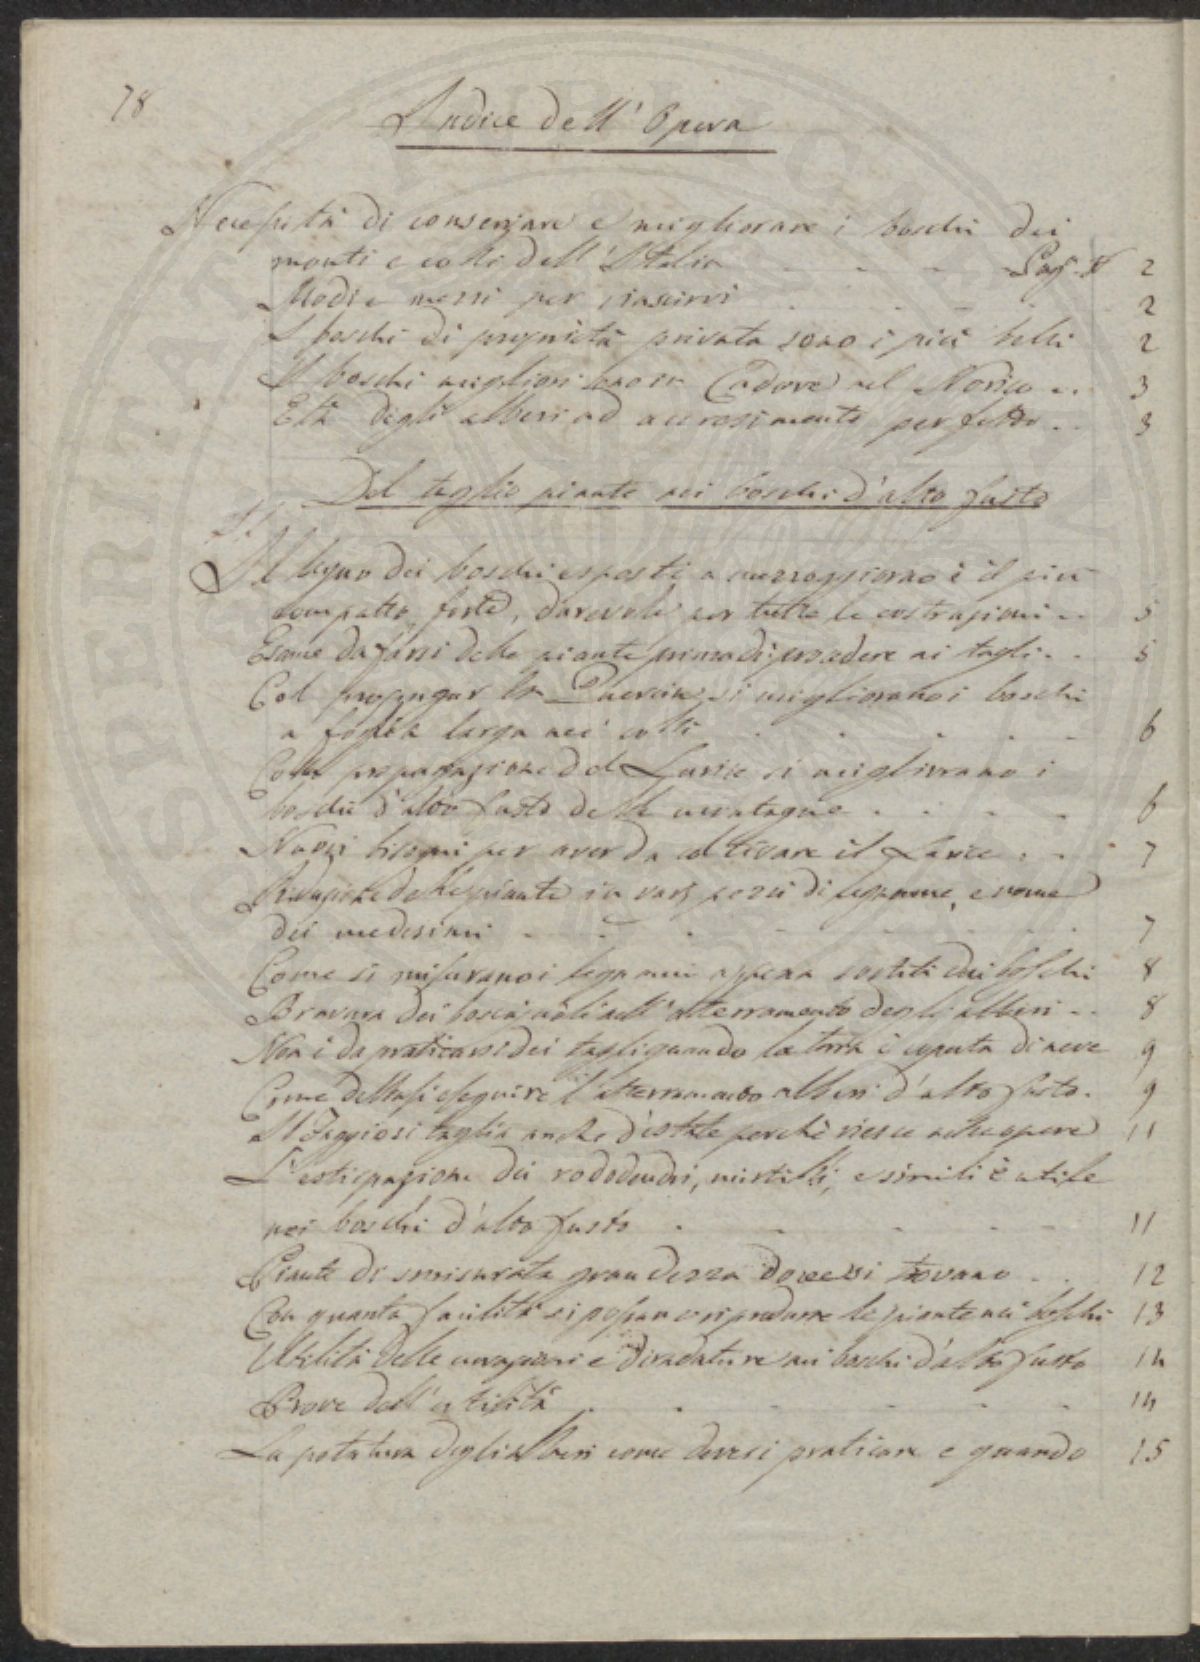 78
Indice dell'Opera
Necessità di conservare e migliorare i boschi dei
monti e colli dell'Italia - - - Pag. 2
Modi e mezzi per riuscirvi . . - . 2
I boschi di proprietà privata sono i più belli 2
I boschi migliori sono in Cadore nel Norico .. 3
Età degli alberi ad accrescimento perfetto .. 3
Del taglio piante nei boschi d'alto fusto
Il legno dei boschi esposti a mezzogiorno è il più
compatto, forte, durevole per tutte le costruzioni .. 5
Esame da farsi delle piante prima di procedere ai tagli . . 5
Col propagar la Quercia si migliorano i boschi
a foglia larga nei colli . . . . - 6
Colla propagazione del Larice si migliorano i
boschi d'alto fusto delle montagne . . - - - 6
Nuovi bisogni per aver da coltivare il Larice . - - 7
Riduzione delle piante in varj pezzi di legname, e nome
dei medesimi - - . - - . . 7
Come si misurano i legnami appena sortiti dai boschi 8
Bravura dei boscajuoli nell'atterramento degli alberi - - 8
Non è da praticarsi dei tagli quando la terra è coperta di neve 9
Come debbasi eseguire l'atterramento alberi d'alto fusto. 9
Il Faggio si taglia anche d'estate perchè riesce 11
L'estirpazione dei rododendri, mirtilli, e simili è utile
nei boschi d'alto fusto . - - - - 11
Piante di smisurata grandezza dove si trovano - . 12
Con quanta facilità si possano riprodurre le piante nei boschi 13
Utilità delle mondazioni e diradature nei boschi d'alto fusto 14
Prove dell'utilità . . - - - - 14
La potatura degli alberi come devesi praticare e quando 15